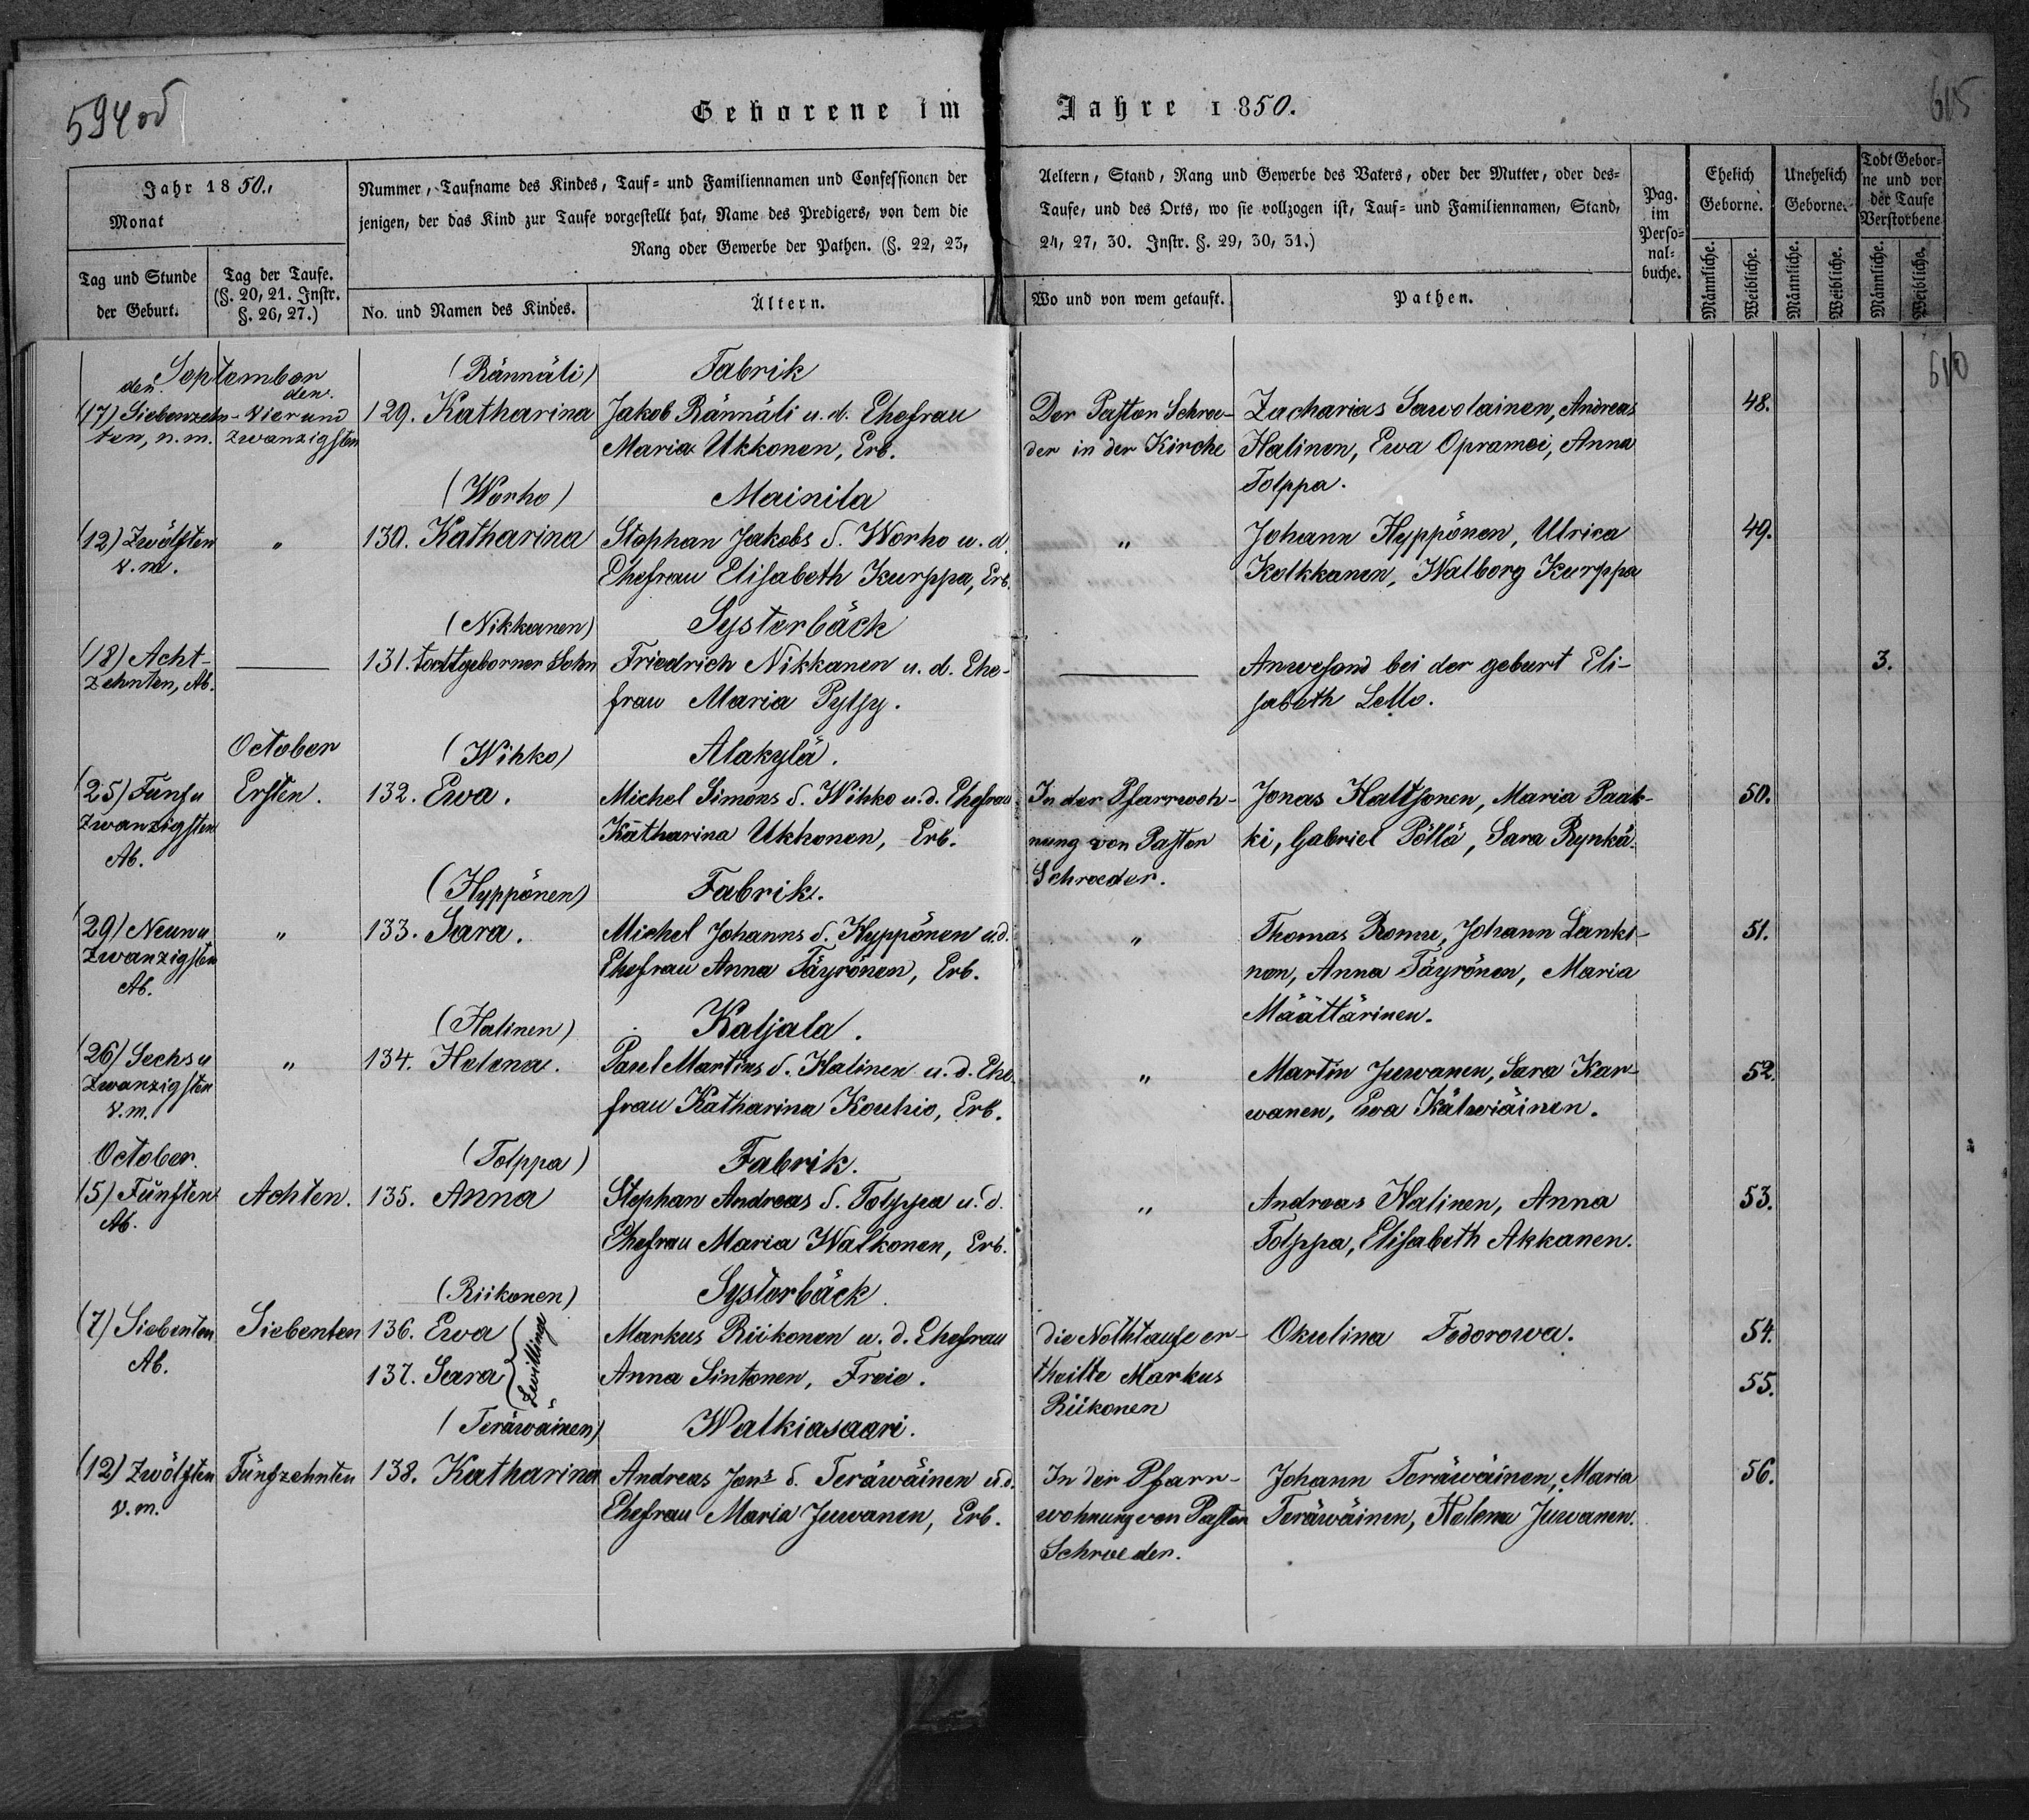 594 об
615
Geborene im Jahre 1850.
Jahr 1850.,
Monat
Tag und Stunde
der Geburt.
Tag der Taufe.
(§. 20, 21. Instr.
§. 26, 27.)
Nummer, Taufname des Kindes, Tauf- und Familiennamen und Confessionen der
jenigen, der das Kind zur Taufe vorgestellt hat, Name des Predigers, von dem die
Rang oder Gewerbe der Pathen. (§. 22, 23,
No. und Namen des Kindes.
Ältern.
Aeltern, Stand, Rang und Gewerbe des Vaters, oder der Mutter, oder des-
Taufe, und des Orts, wo sie vollzogen ist, Tauf- und Familiennamen, Stand,
24, 27, 30. Instr. §. 29, 30, 31.)
Wo und von wem getauft.
Pathen.
Pag.
im
Perso-
nal-
buche.
Ehelich
Geborne.
Unehelich
Geborne.
Todt Gebor-
ne und vor
der Taufe
Verstorbene
Männliche.
Weibliche.
Männliche.
Weibliche.
Männliche.
Weibliche.
610
September
den
den.
(Rännäli)
Fabrik
(17) Siebenzehn-
ten, n. m.
Vier und
zwanzigsten
129. Katharina
Jakob Rännäli u. d. Ehefrau
Maria Ukkonen, Erb.
Der Pastor Schroe-
der in der Kirche
Zacharias Sawolainen, Andreas
Halinen, Ewa Opramei, Anna
Tolppa.
48.
(Worho)
Mainila
(12) Zwölften
v. m.
"
130. Katharina
Stephan Jakobs S. Worho u. d.
Ehefrau Elisabeth Kurppa, Erb.
"
Johann Hyppönen, Ulrica
Kolkkanen, Walborg Kurppa
49.
(Nikkanen)
Systerbäck
(18) Acht-
zehnten, Ab.
131. todtgeborner Sohn
Friedrich Nikkanen u. d. Ehe-
frau Maria Pytsy.
Anwesend bei der geburt Eli-
sabeth Lello.
3.
October
(Wihko)
Alakylä.
(25) Fünf u
zwanzigsten
Ab.
Ersten.
132. Ewa.
Michel Simons S. Wihko u. d. Ehefrau
Katharina Ukkonen, Erb.
In der Pfarrwoh-
nung von Pastor
Schroeder.
Jonas Hattsonen, Maria Paak-
ki, Gabriel Pöllä, Sara Rynkä.
50.
(Hyppönen)
Fabrik.
(29) Neun u
zwanzigsten
Ab.
"
133. Sara.
Michel Johanns S. Hyppönen u. d.
Ehefrau Anna Täyrönen, Erb.
"
Thomas Romu, Johann Lanki-
nen, Anna Täyrönen, Maria
Määttärinen.
51.
(Halinen)
Kaljala.
(26) Sechs u
zwanzigsten
v. m.
"
134. Helena.
Paul Martins S. Halinen u. d. Ehe-
frau Katharina Kouhio, Erb.
"
Martin Juwanen, Sara Kar-
wanen, Ewa Kälwiäinen.
52.
October.
(Tolppa)
Fabrik.
(5) Fünften
Ab.
Achten.
135. Anna
Stephan Andreas S. Tolppa u. d.
Ehefrau Maria Walkonen, Erb.
"
Andreas Halinen, Anna
Tolppa, Elisabeth Akkanen.
53.
(Riikonen)
Systerbäck
(7) Siebenten
Ab.
Siebenten
136. Ewa
137. Sara
Zwillinge
Markus Riikonen u. d. Ehefrau
Anna Sintonen, Freie.
die Nothtaufe er-
theilte Markus
Riikonen
Okulina Fedorowa.
54.
55.
(Teräwäinen)
Walkiasaari.
(12) Zwölften
v. m.
Fünfzehnten
138. Katharina
Andreas Jons S. Teräwäinen u. d.
Ehefrau Maria Juwanen, Erb.
In der Pfarr-
wohnung von Pastor
Schroeder.
Johann Teräwäinen, Maria
Teräwäinen, Helena Juwanen.
56.